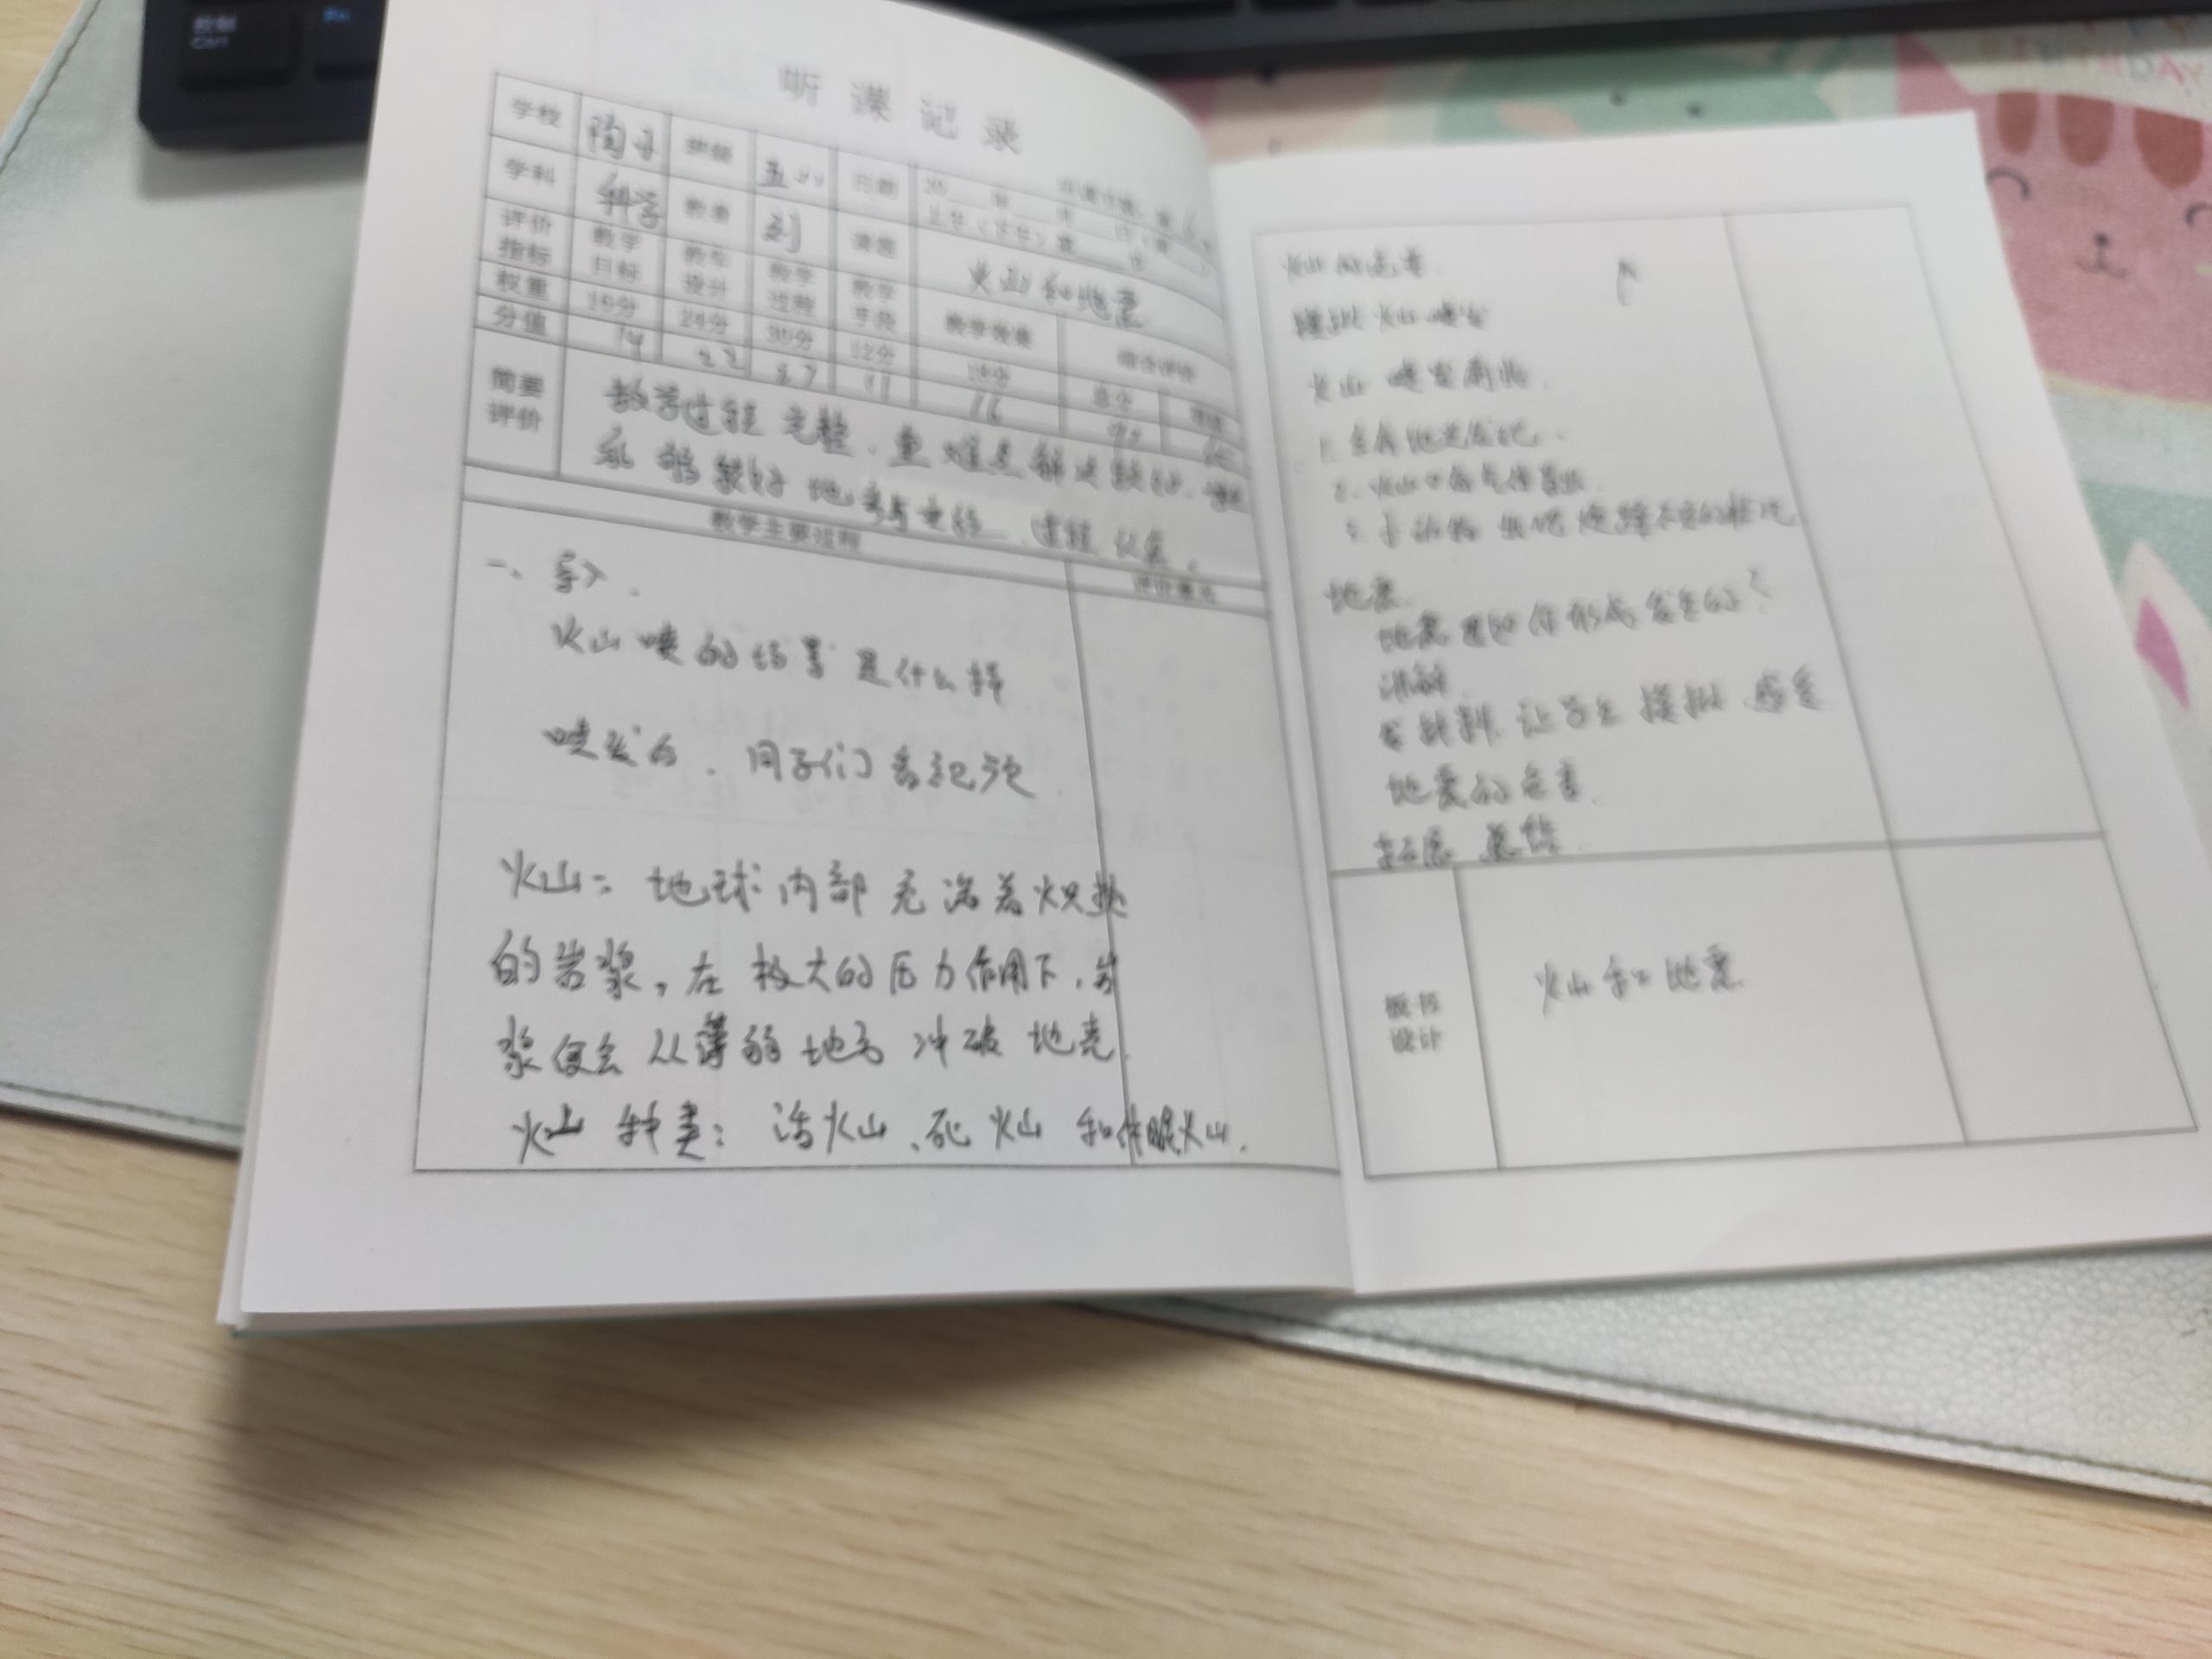 控制
Ctrl
听课记录
学校 陶子 班级 五 日期 20
学科 科学 教者 刘 课题 火山和地震
评价指标 教学目标 教学设计 教学过程 教学手段 教学效果 综合评价
权重 24分 30分 12分
分值 14 22 27 11 16
简要评价
教学过程完整、重难点解决较好、
能够较好地参与
教学主要过程
一、导入.
火山喷的场景是什么样
喷发的. 同学们看视频
火山: 地球内部充满着炽热
的岩浆,在极大的压力作用下,岩
浆便会从薄弱地方冲破地壳.
火山种类: 活火山、死火山和休眠火山.
火山的危害
模拟火山喷发
火山喷发前兆.
1. 会有地
2. 火山口有气体冒出.
3. 小动物出现
地震.
地震是如何形成发生的?
讲解
发材料 让学生模拟 感受
地震的危害.
拓展 总结
板书设计
火山和地震